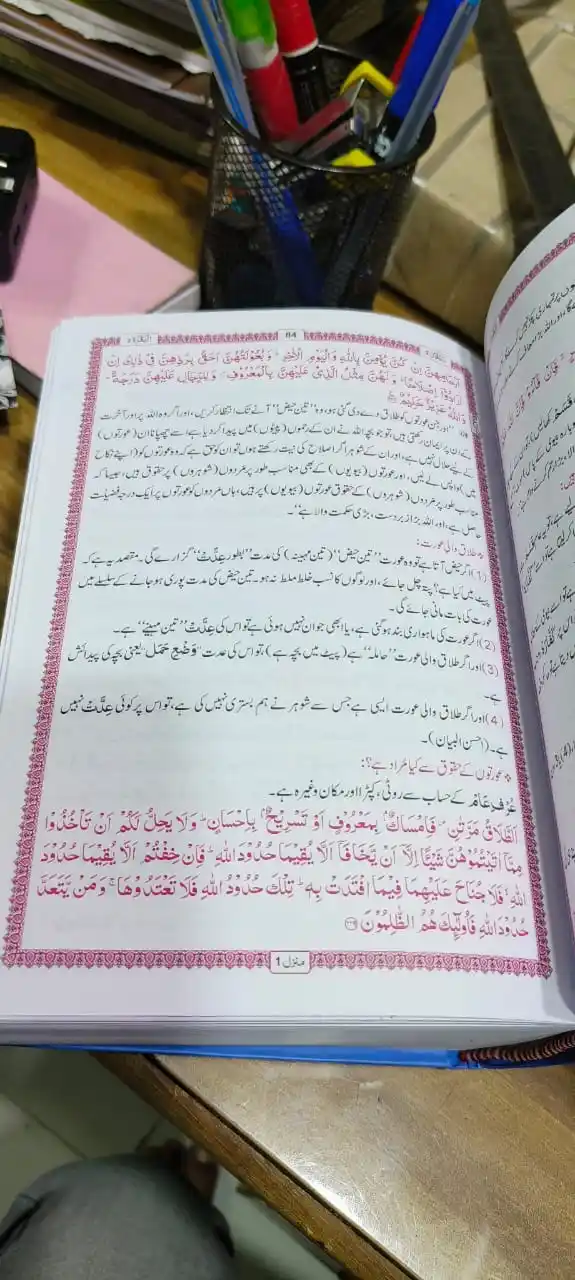 البقرة ٢ 64 البقرة ٢
اَرْحَامِهِنَّ اِنْ كُنَّ يُؤْمِنَّ بِاللّٰهِ وَالْيَوْمِ الْاٰخِرِ ؕ وَبُعُوْلَتُهُنَّ اَحَقُّ بِرَدِّهِنَّ فِيْ ذٰلِكَ اِنْ
اَرَادُوْۤا اِصْلَاحًا ؕ وَلَهُنَّ مِثْلُ الَّذِيْ عَلَيْهِنَّ بِالْمَعْرُوْفِ ۪ وَلِلرِّجَالِ عَلَيْهِنَّ دَرَجَةٌ ؕ
وَاللّٰهُ عَزِيْزٌ حَكِيْمٌ
”اور جن عورتوں کو طلاق دے دی گئی ہو، وہ ”تین حیض“ آنے تک انتظار کریں، اور اگر وہ اللہ پر اور آخرت
کے دن پر ایمان رکھتی ہیں، تو جو بچہ اللہ نے ان کے رحموں (پیٹوں) میں پیدا کر دیا ہے، اسے چھپانا ان (عورتوں)
کے لیے حلال نہیں ہے، اور ان کے شوہر اگر اصلاح کی نیت رکھتے ہوں تو ان کو حق ہے کہ وہ عورتوں کو (اپنے نکاح
میں) واپس لے لیں، اور عورتوں (بیویوں) کے بھی مناسب طور پر مردوں (شوہروں) پر حقوق ہیں، جیسا کہ
مناسب طور پر مردوں (شوہروں) کے حقوق عورتوں (بیویوں) پر ہیں، ہاں مردوں کو عورتوں پر ایک درجہ فضیلت
حاصل ہے، اور اللہ بڑا زبردست، بڑی حکمت والا ہے“۔
طلاق والی عورت:
(1) اگر حیض آتا ہے تو وہ عورت ”تین حیض“ (تین مہینہ) کی مدت ”بطورِ عِدَّتْ“ گزارے گی۔ مقصد یہ ہے کہ
پیٹ میں کیا ہے؟ پتہ چل جائے، اور لوگوں کا نسب خلط ملط نہ ہو۔ تین حیض کی مدت پوری ہو جانے کے سلسلے میں
عورت کی بات مانی جائے گی۔
(2) اگر عورت کی ماہواری بند ہو گئی ہے، یا ابھی جوان نہیں ہوئی ہے تو اس کی عِدَّتْ ”تین مہینے“ ہے۔
(3) اور اگر طلاق والی عورت ”حاملہ“ ہے (پیٹ میں بچہ ہے)، تو اس کی عدت ”وَضْعِ حَمل“ یعنی بچہ کی پیدائش
ہے۔
(4) اور اگر طلاق والی عورت ایسی ہے جس سے شوہر نے ہم بستری نہیں کی ہے، تو اس پر کوئی عِدَّتْ نہیں
ہے۔ (احسن البیان)۔
عورتوں کے حقوق سے کیا مُراد ہے؟:
عُرفِ عَام کے حساب سے روٹی، کپڑا اور مکان وغیرہ ہے۔
اَلطَّلَاقُ مَرَّتٰنِ ۪ فَاِمْسَاكٌۢ بِمَعْرُوْفٍ اَوْ تَسْرِيْحٌۢ بِاِحْسَانٍ ؕ وَلَا يَحِلُّ لَكُمْ اَنْ تَاْخُذُوْا
مِمَّاۤ اٰتَيْتُمُوْهُنَّ شَيْـًٔا اِلَّاۤ اَنْ يَّخَافَاۤ اَلَّا يُقِيْمَا حُدُوْدَ اللّٰهِ ؕ فَاِنْ خِفْتُمْ اَلَّا يُقِيْمَا حُدُوْدَ
اللّٰهِ ۙ فَلَا جُنَاحَ عَلَيْهِمَا فِيْمَا افْتَدَتْ بِهٖ ؕ تِلْكَ حُدُوْدُ اللّٰهِ فَلَا تَعْتَدُوْهَا ۚ وَمَنْ يَّتَعَدَّ
حُدُوْدَ اللّٰهِ فَاُولٰٓئِكَ هُمُ الظّٰلِمُوْنَ ﴿۲۲۹﴾
منزل 1